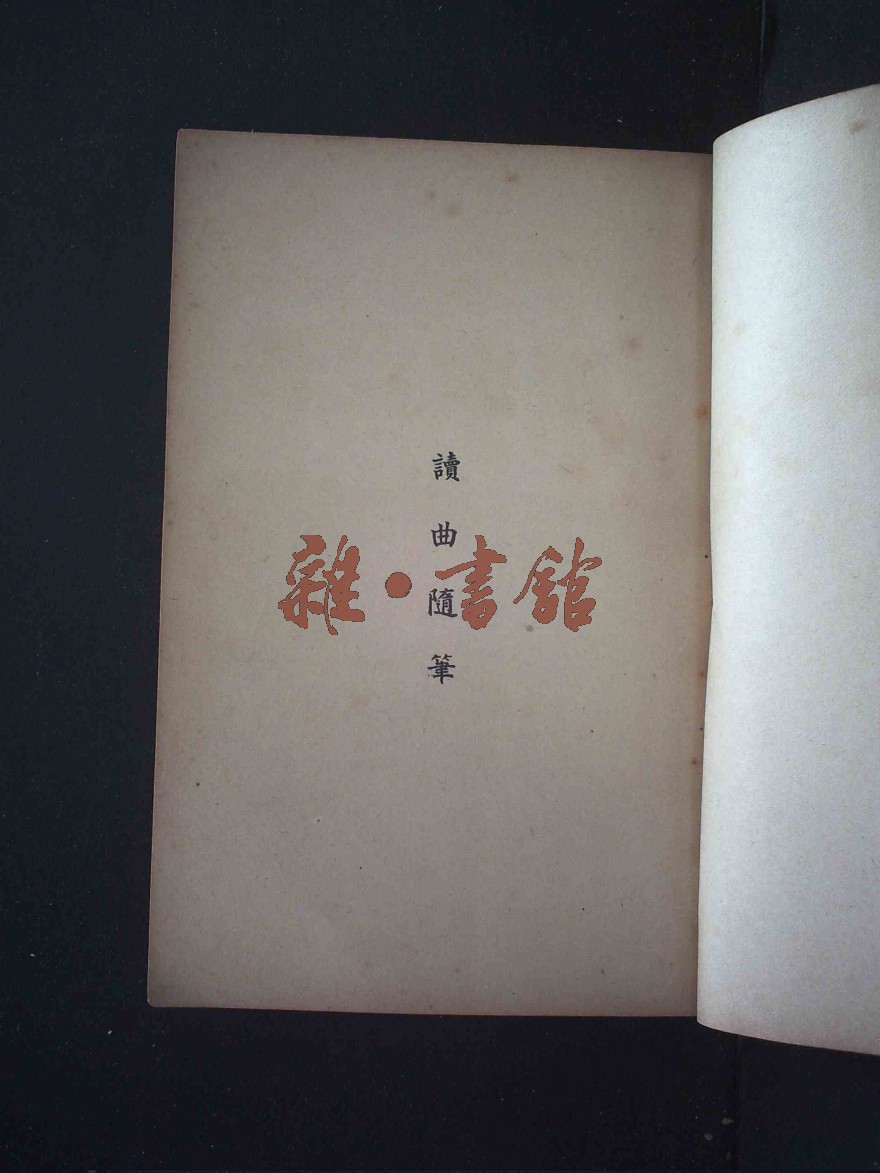 讀曲隨筆
雜·書館